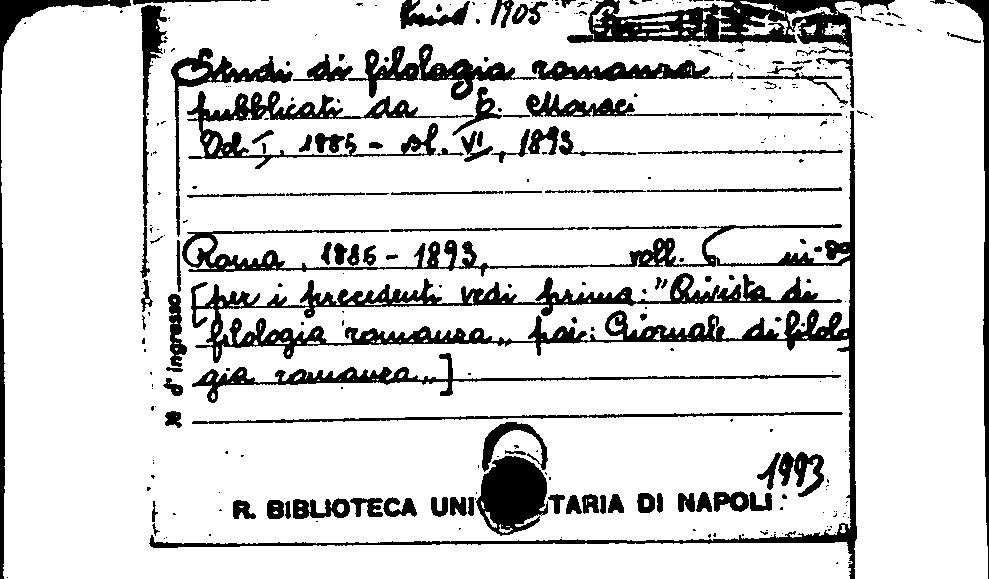 Period. 1905
Studi di filologia romanza
pubblicati da E. Monaci
Vol. I. 1885 - Vol. VI, 1893
Roma, 1885 - 1893, voll. 6 in-8º
[per i precedenti vedi prima: "Rivista di
filologia romanza„ poi: Giornale di filolo
gia romanza„]
d'ingresso
1993
R. BIBLIOTECA UNI TARIA DI NAPOLI